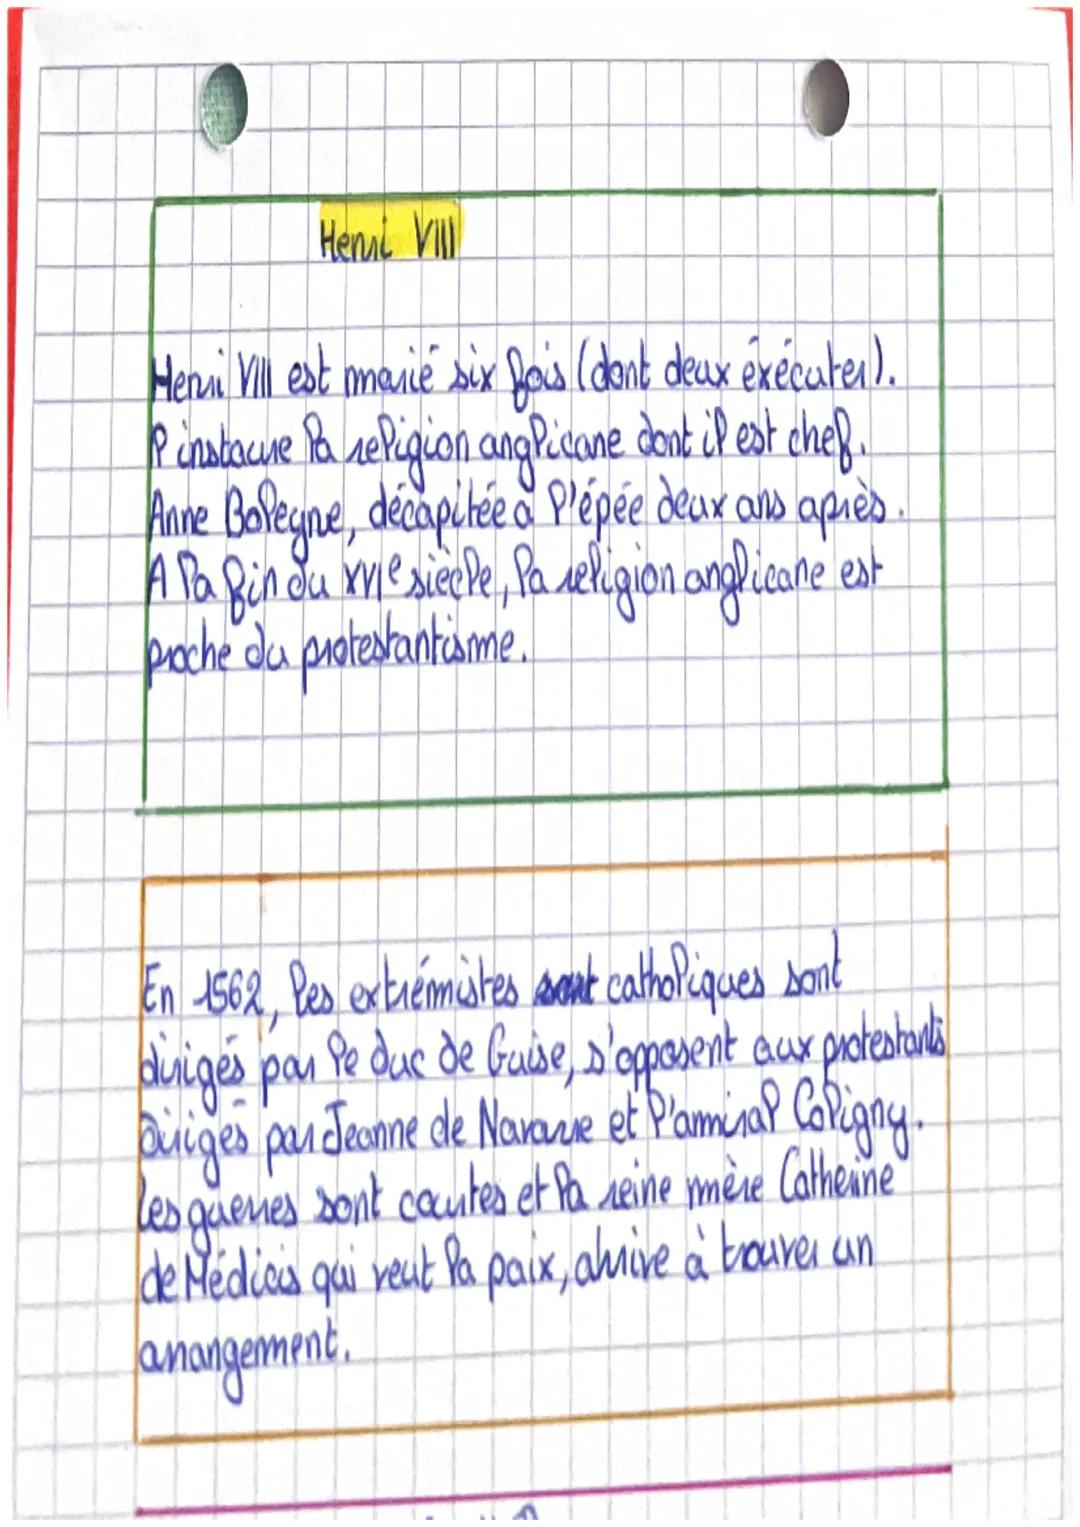 Henri VIII
Henri VIII est marié six fois (dont deux éxécuter).
l instaure la religion anglicane dont il est chef.
Anne Boleyne, décapitée à l'épée deux ans après.
A la fin du XVIe siècle, la religion anglicane est
proche du protestantisme.
En 1562, les extrémistes sont catholiques sont
dirigés par le duc de Guise, s'opposent aux protestants
dirigés par Jeanne de Navarre et l'amiral Coligny.
Les guerres sont courtes et la reine mère Catherine
de Médicis qui veut la paix, arrive à trouver un
arrangement.